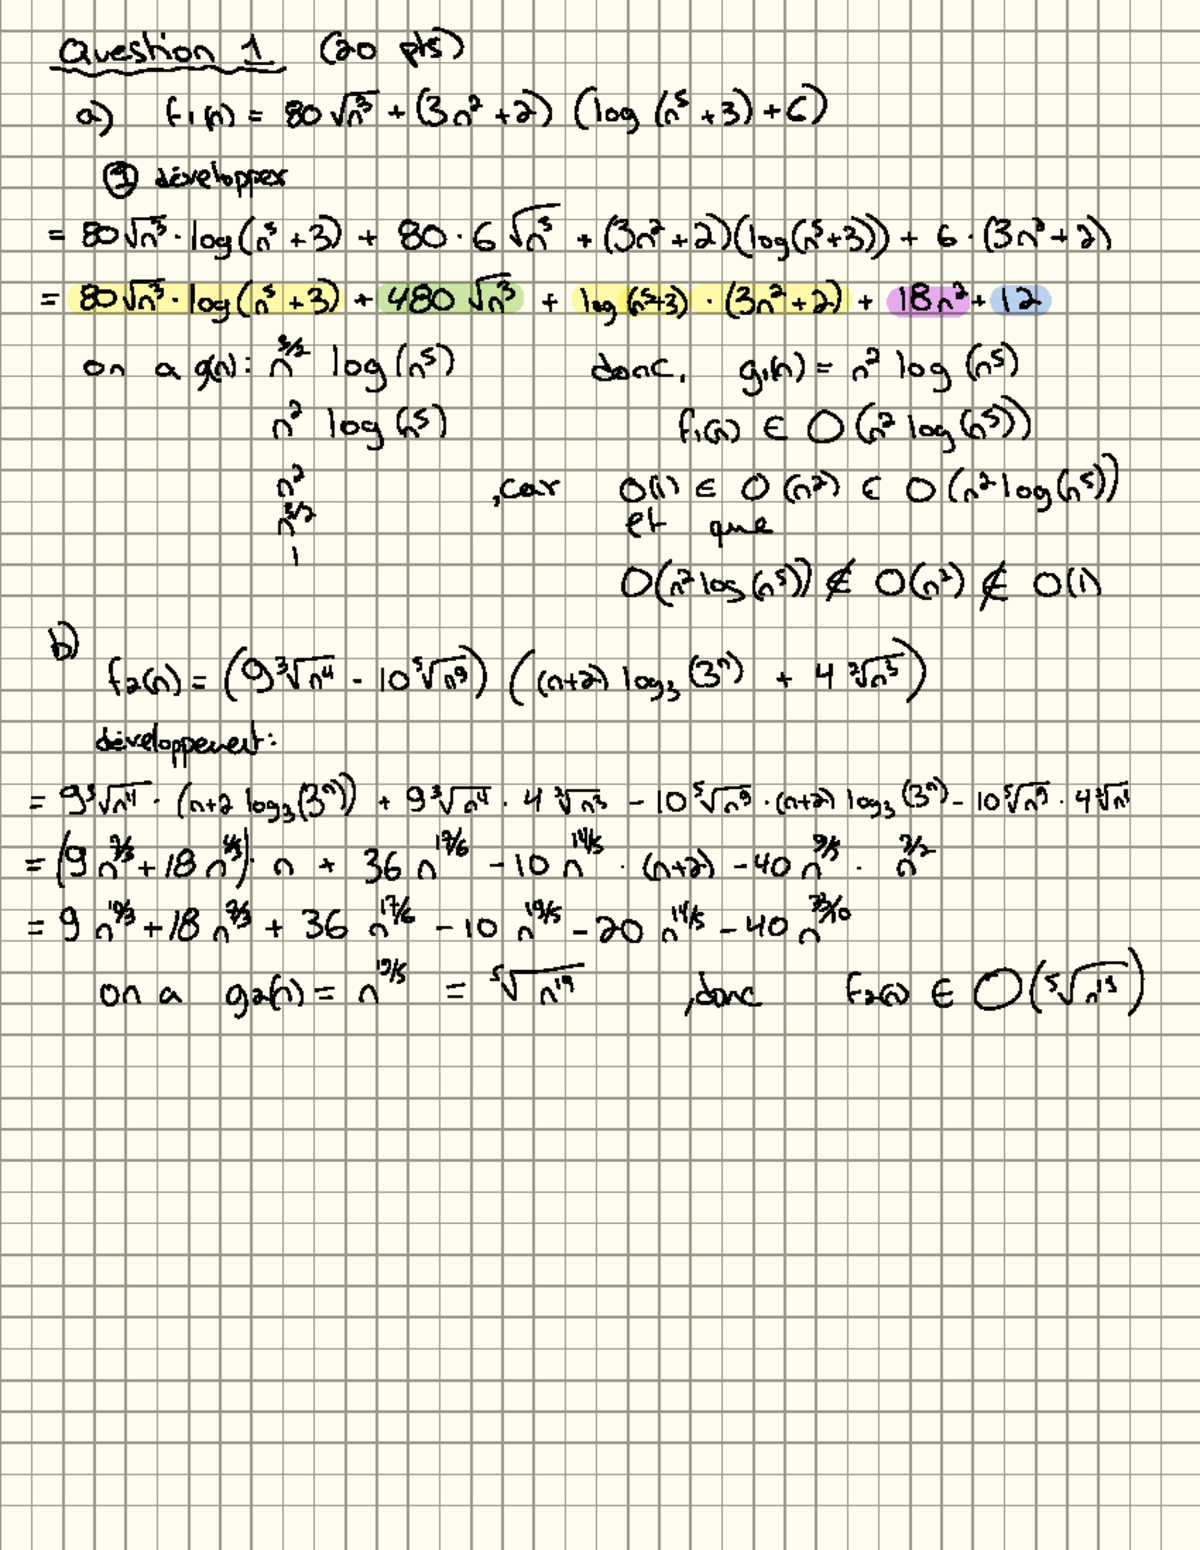 Question 1 (20 pts)
a) f₁(n) = 80√n³ + (3n² + 2) (log (n⁵ + 3) + 6)
① développer
= 80√n³ · log(n⁵ + 3) + 80 · 6 √n³ + (3n² + 2)(log(n⁵+3)) + 6 · (3n² + 2)
= 80√n³ · log(n⁵ + 3) + 480 √n³ + log (n⁵+3) · (3n² + 2) + 18n² + 12
on a g(n) : n^3/2 log (n⁵) donc, g₁(n) = n² log (n⁵)
n² log (n⁵) f₁(n) ∈ O (n² log (n⁵))
n² , car O(1) ∈ O (n²) ∈ O (n² log (n⁵))
n^3/2 et que
1 O(n² log (n⁵)) ∉ O(n²) ∉ O(1)
b)
f₂(n) = (9 ³√n⁴ - 10 ⁵√n⁹) ((n+2) log₃ (3ⁿ) + 4 ²√n³)
développement :
= 9 ³√n⁴ · (n+2 log₃(3ⁿ)) + 9 ³√n⁴ · 4 ²√n³ - 10 ⁵√n⁹ · (n+2) log₃ (3ⁿ) - 10 ⁵√n⁹ · 4
= (9 n^7/3 + 18 n^4/3) · n + 36 n^17/6 - 10 n^14/5 · (n+2) - 40 n^9/5 · n^3/2
= 9 n^10/3 + 18 n^7/3 + 36 n^17/6 - 10 n^19/5 - 20 n^14/5 - 40 n^33/10
on a g₂(n) = n^19/5 = ⁵√n¹⁹ , donc f₂(n) ∈ O(⁵√n¹⁹)